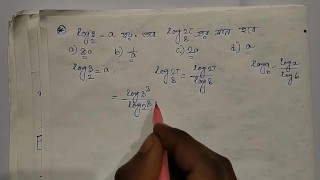 * log₂3 = a হয়, তবে log₈27 এর মান হবে
a) 3a b) 1/a c) 2a d) a
log₂3 = a log₈27 = log27/log8 log_b a = log a/log b
= log3³/log2³